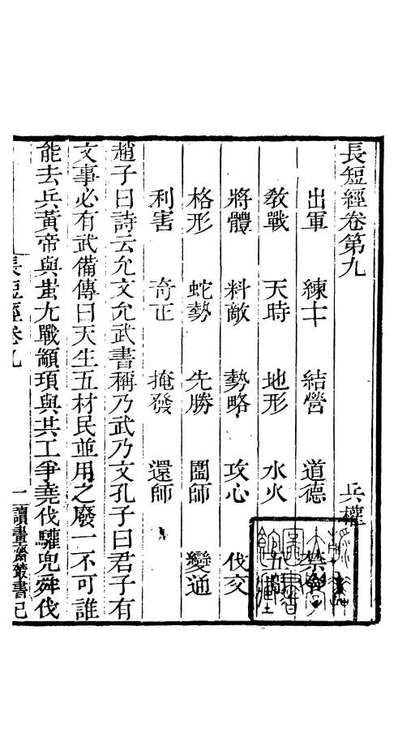 長短經卷第九 兵權
出軍 練士 結營 道德 禁
敎戰 天時 地形 水火 五
將體 料敵 勢略 攻心 伐交
格形 蛇勢 先勝 圍師 變通
利害 奇正 掩發 還師
趙子曰詩云允文允武書稱乃武乃文孔子曰君子有
文事必有武備傳曰天生五材民並用之廢一不可誰
能去兵黃帝與蚩尤戰顓頊與共工爭堯伐驩兜舜伐
長短經卷九 一 讀畫齋叢書 己